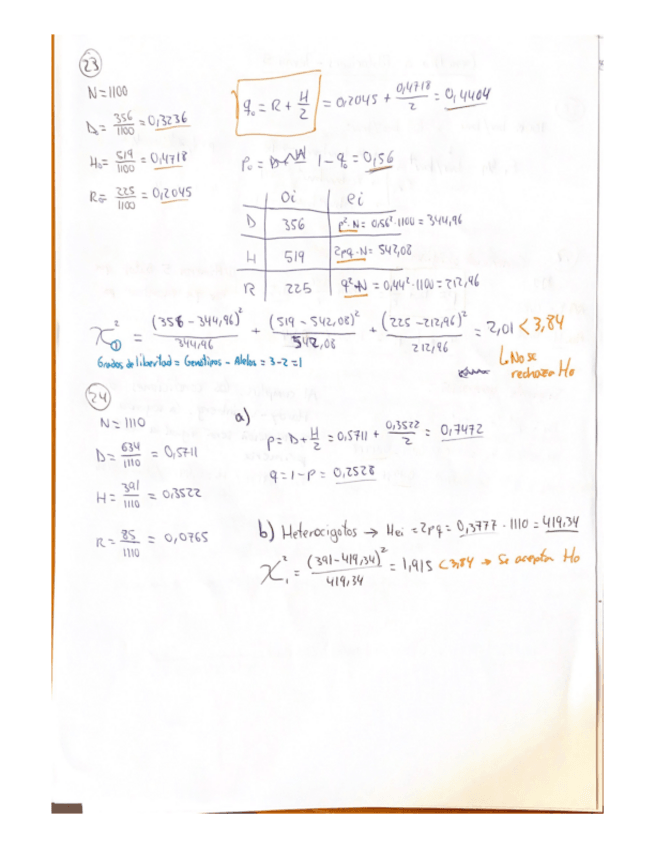 23
N=1100
D₀= 356/1100 = 0,3236
H₀= 519/1100 = 0,4718
R₀= 225/1100 = 0,2045
q₀ = R + H/2 = 0,2045 + 0,4718/2 = 0,4404
p₀ = 1 - q₀ = 0,56
Oi ei
D 356 p²·N = 0,56²·1100 = 344,96
H 519 2pq·N = 542,08
R 225 q²·N = 0,44²·1100 = 212,96
χ²₁ = (356 - 344,96)²/344,96 + (519 - 542,08)²/542,08 + (225 - 212,96)²/212,96 = 2,01 < 3,84
↳ No se
rechaza H₀
Grados de libertad = Genotipos - Alelos = 3-2 = 1
24
N = 1110
D = 634/1110 = 0,5711
H = 391/1110 = 0,3522
R = 85/1110 = 0,0765
a)
p = D + H/2 = 0,5711 + 0,3522/2 = 0,7472
q = 1 - p = 0,2528
b) Heterocigotos → Hei = 2pq = 0,3777 · 1110 = 419,34
χ²₁ = (391 - 419,34)²/419,34 = 1,915 < 3,84 → Se acepta H₀